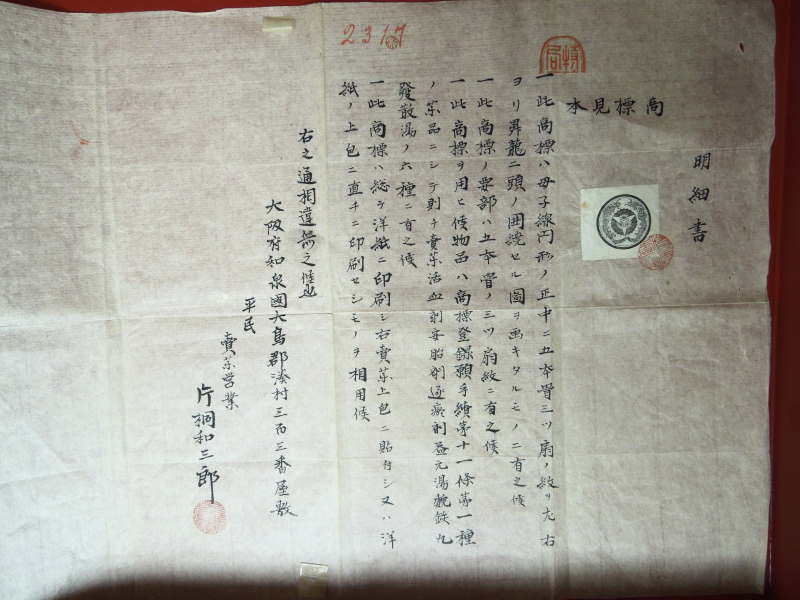 2317
特局
明細書
商標見本
一此商標ハ母子線円形ノ正中ニ五本骨三ツ扇ノ紋ヲ左右
ヨリ昇龍二頭ノ囲繞セル圖ヲ画キタルモノニ有之候
一此商標ノ要部ハ五本骨ノ三ツ扇紋ニ有之候
一此商標ヲ用ヒ候物品ハ商標登録願手續第十一條第一種
ノ薬品ニシテ則チ賣薬活血剤安胎剤逐瘀剤益元湯
發散湯ノ六種ニ有之候
一此商標ハ総テ洋紙ニ印刷シ右賣薬上包ニ貼付シ又ハ洋
紙ノ上包ニ直チニ印刷セシモノヲ相用候
右之通相違無之候也
大阪府和泉國大鳥郡湊村三百三番屋敷
平民
賣薬営業
片桐和三郎